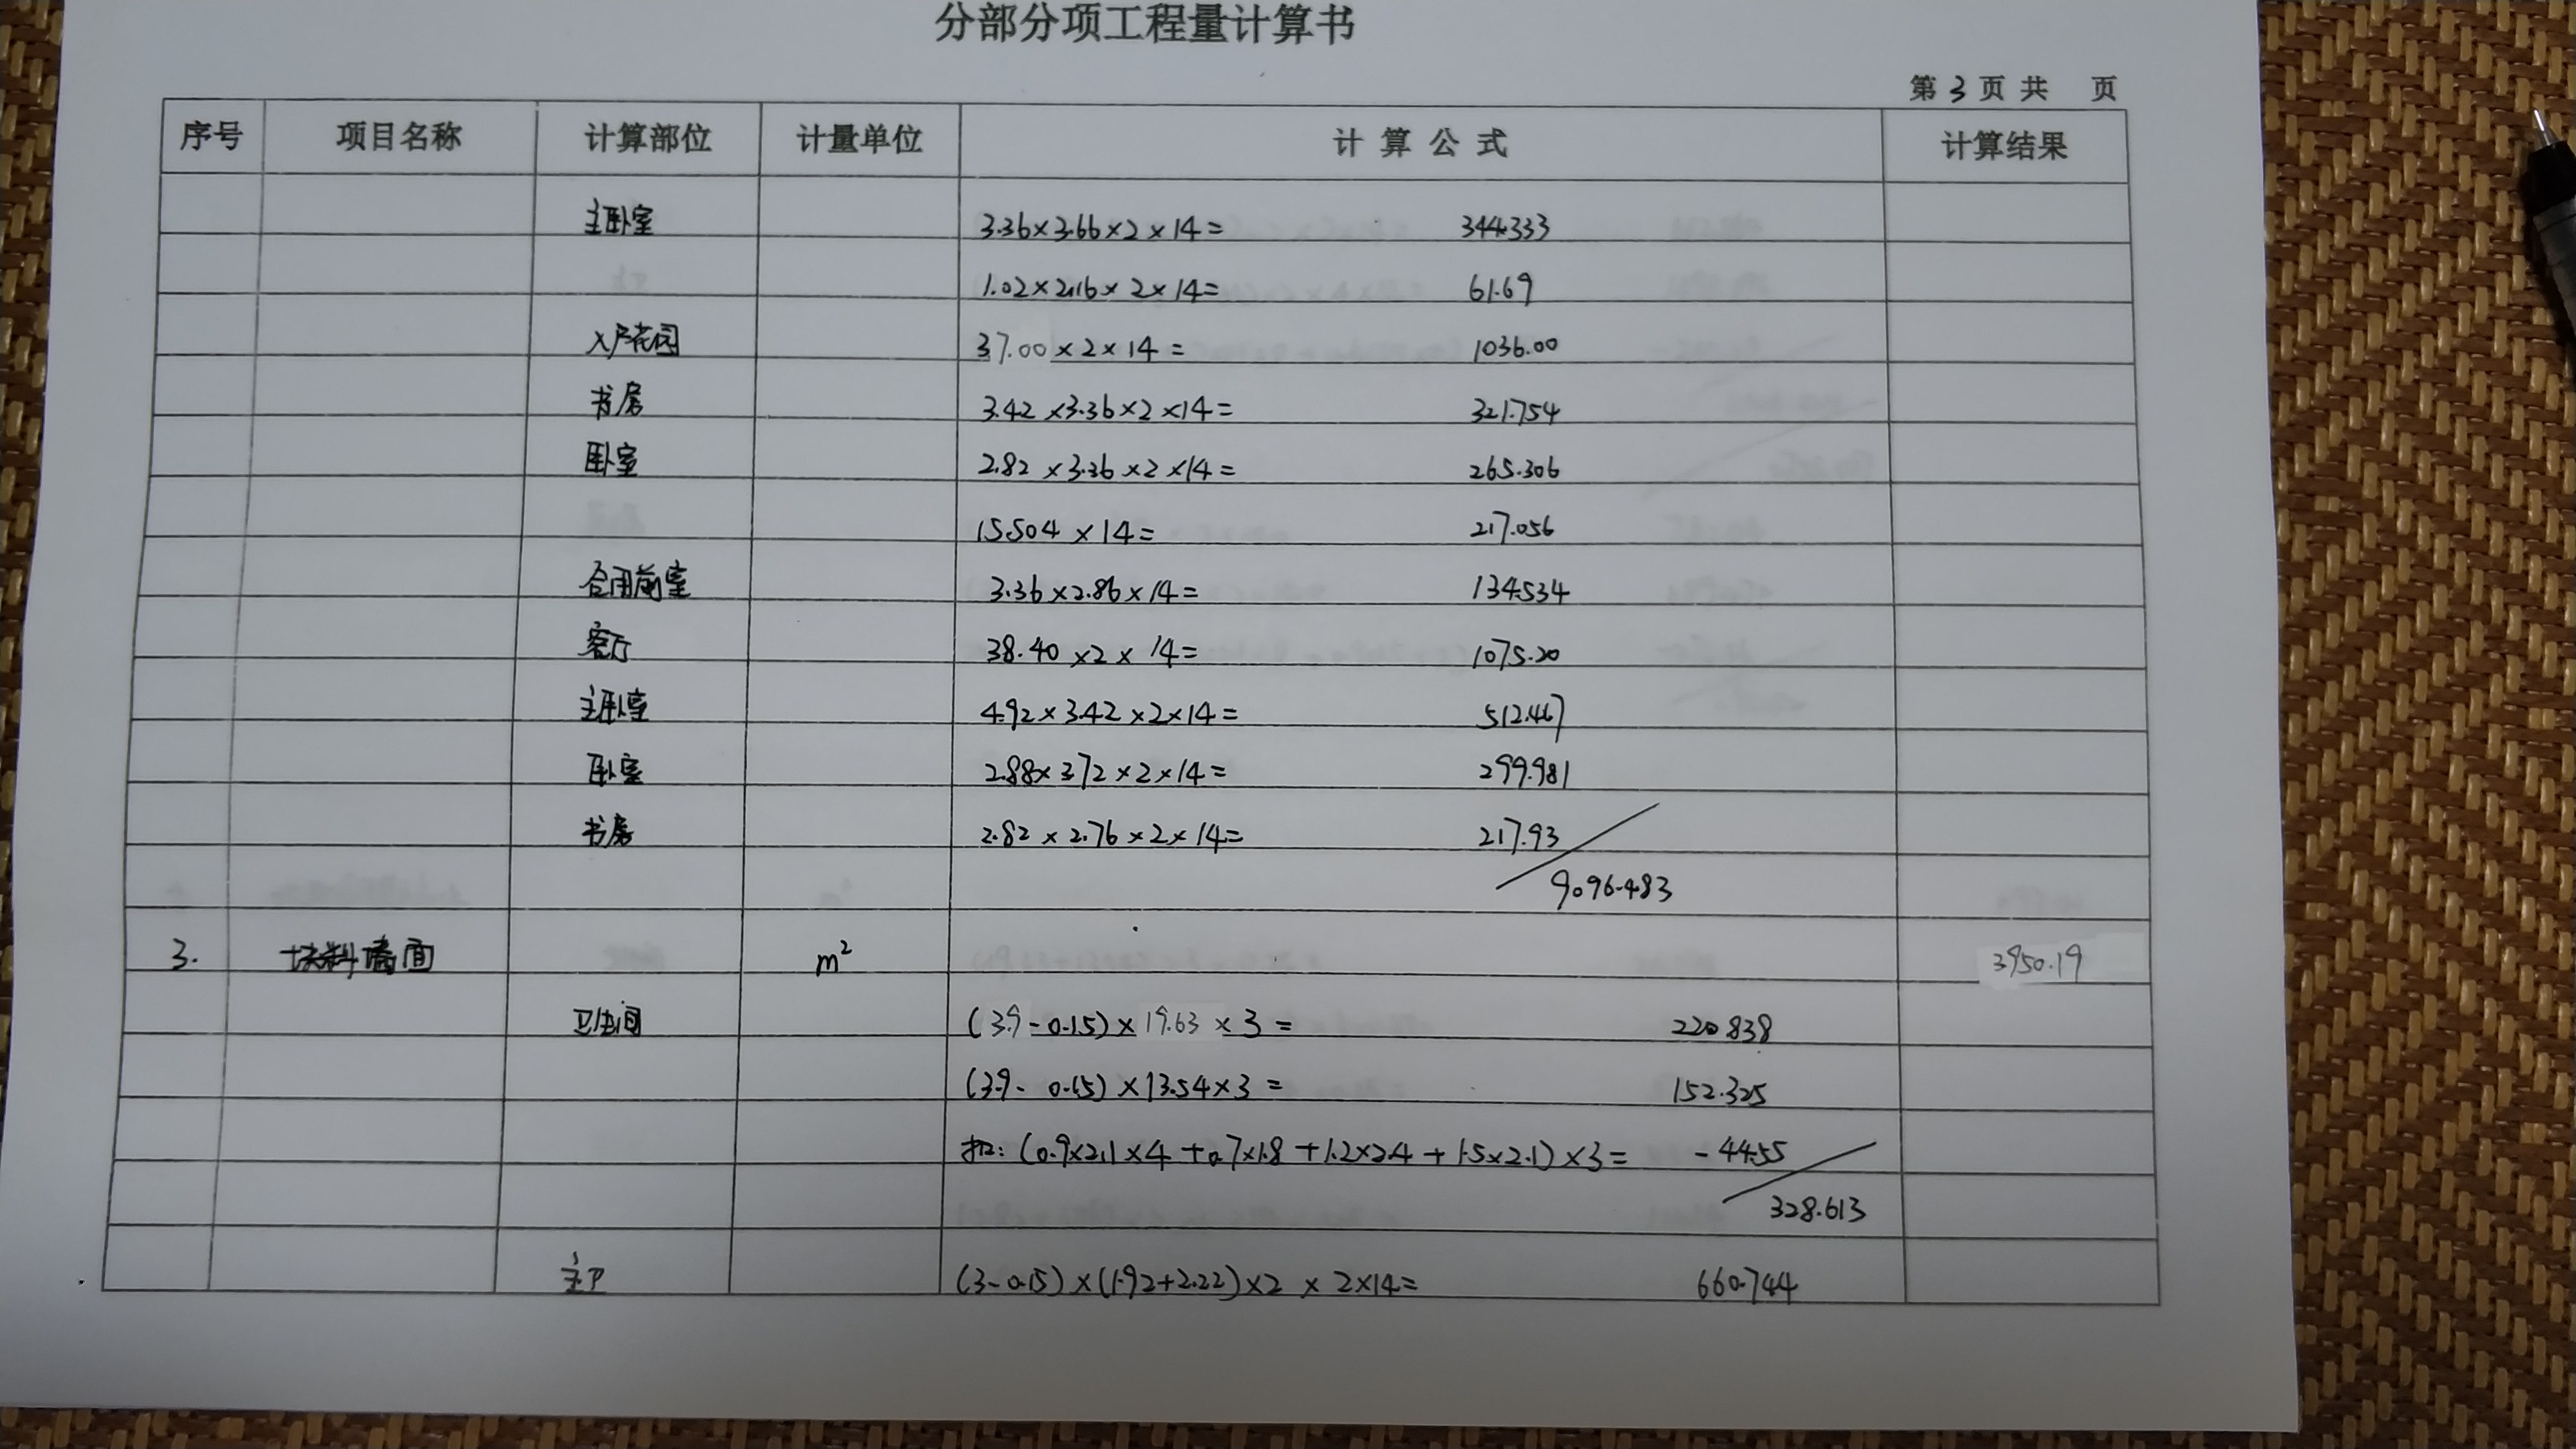 分部分项工程量计算书
第 3 页 共 页
序号 项目名称 计算部位 计量单位 计 算 公 式 计算结果
主卧室 3.36×3.66×2×14= 344.333
1.02×2.16×2×14= 61.69
入户花园 37.00×2×14= 1036.00
书房 3.42×3.36×2×14= 321.754
卧室 2.82×3.36×2×14= 265.306
15.504×14= 217.056
合用前室 3.36×2.86×14= 134.534
客厅 38.40×2×14= 1075.20
主卧室 4.92×3.42×2×14= 512.467
卧室 2.88×3.72×2×14= 299.981
书房 2.82×2.76×2×14= 217.93
9096.483
3. 块料墙面 m² 3950.19
卫生间 (3.9-0.15)×19.63×3= 220.838
(3.9-0.15)×13.54×3= 152.325
扣:(0.9×2.1×4+0.7×1.8+1.2×2.4+1.5×2.1)×3= -44.55
328.613
主卫 (3-0.15)×(1.92+2.22)×2×2×14= 660.744